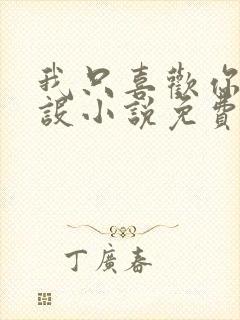 我只喜歡你
設小說免費
丁廣春